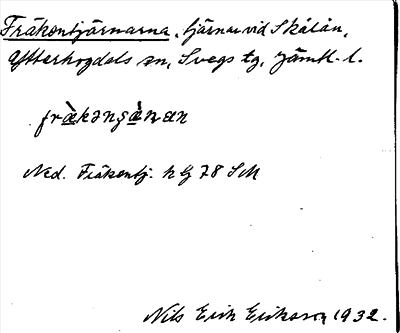 Fräkentjärnarna, tjärnar vid Skålån,
Ytterhogdals sn, Svegs tg, Jämtl. l.
Ned. Fräkentj. h hj 78 SM
Nils Erik Eriksson 1932.